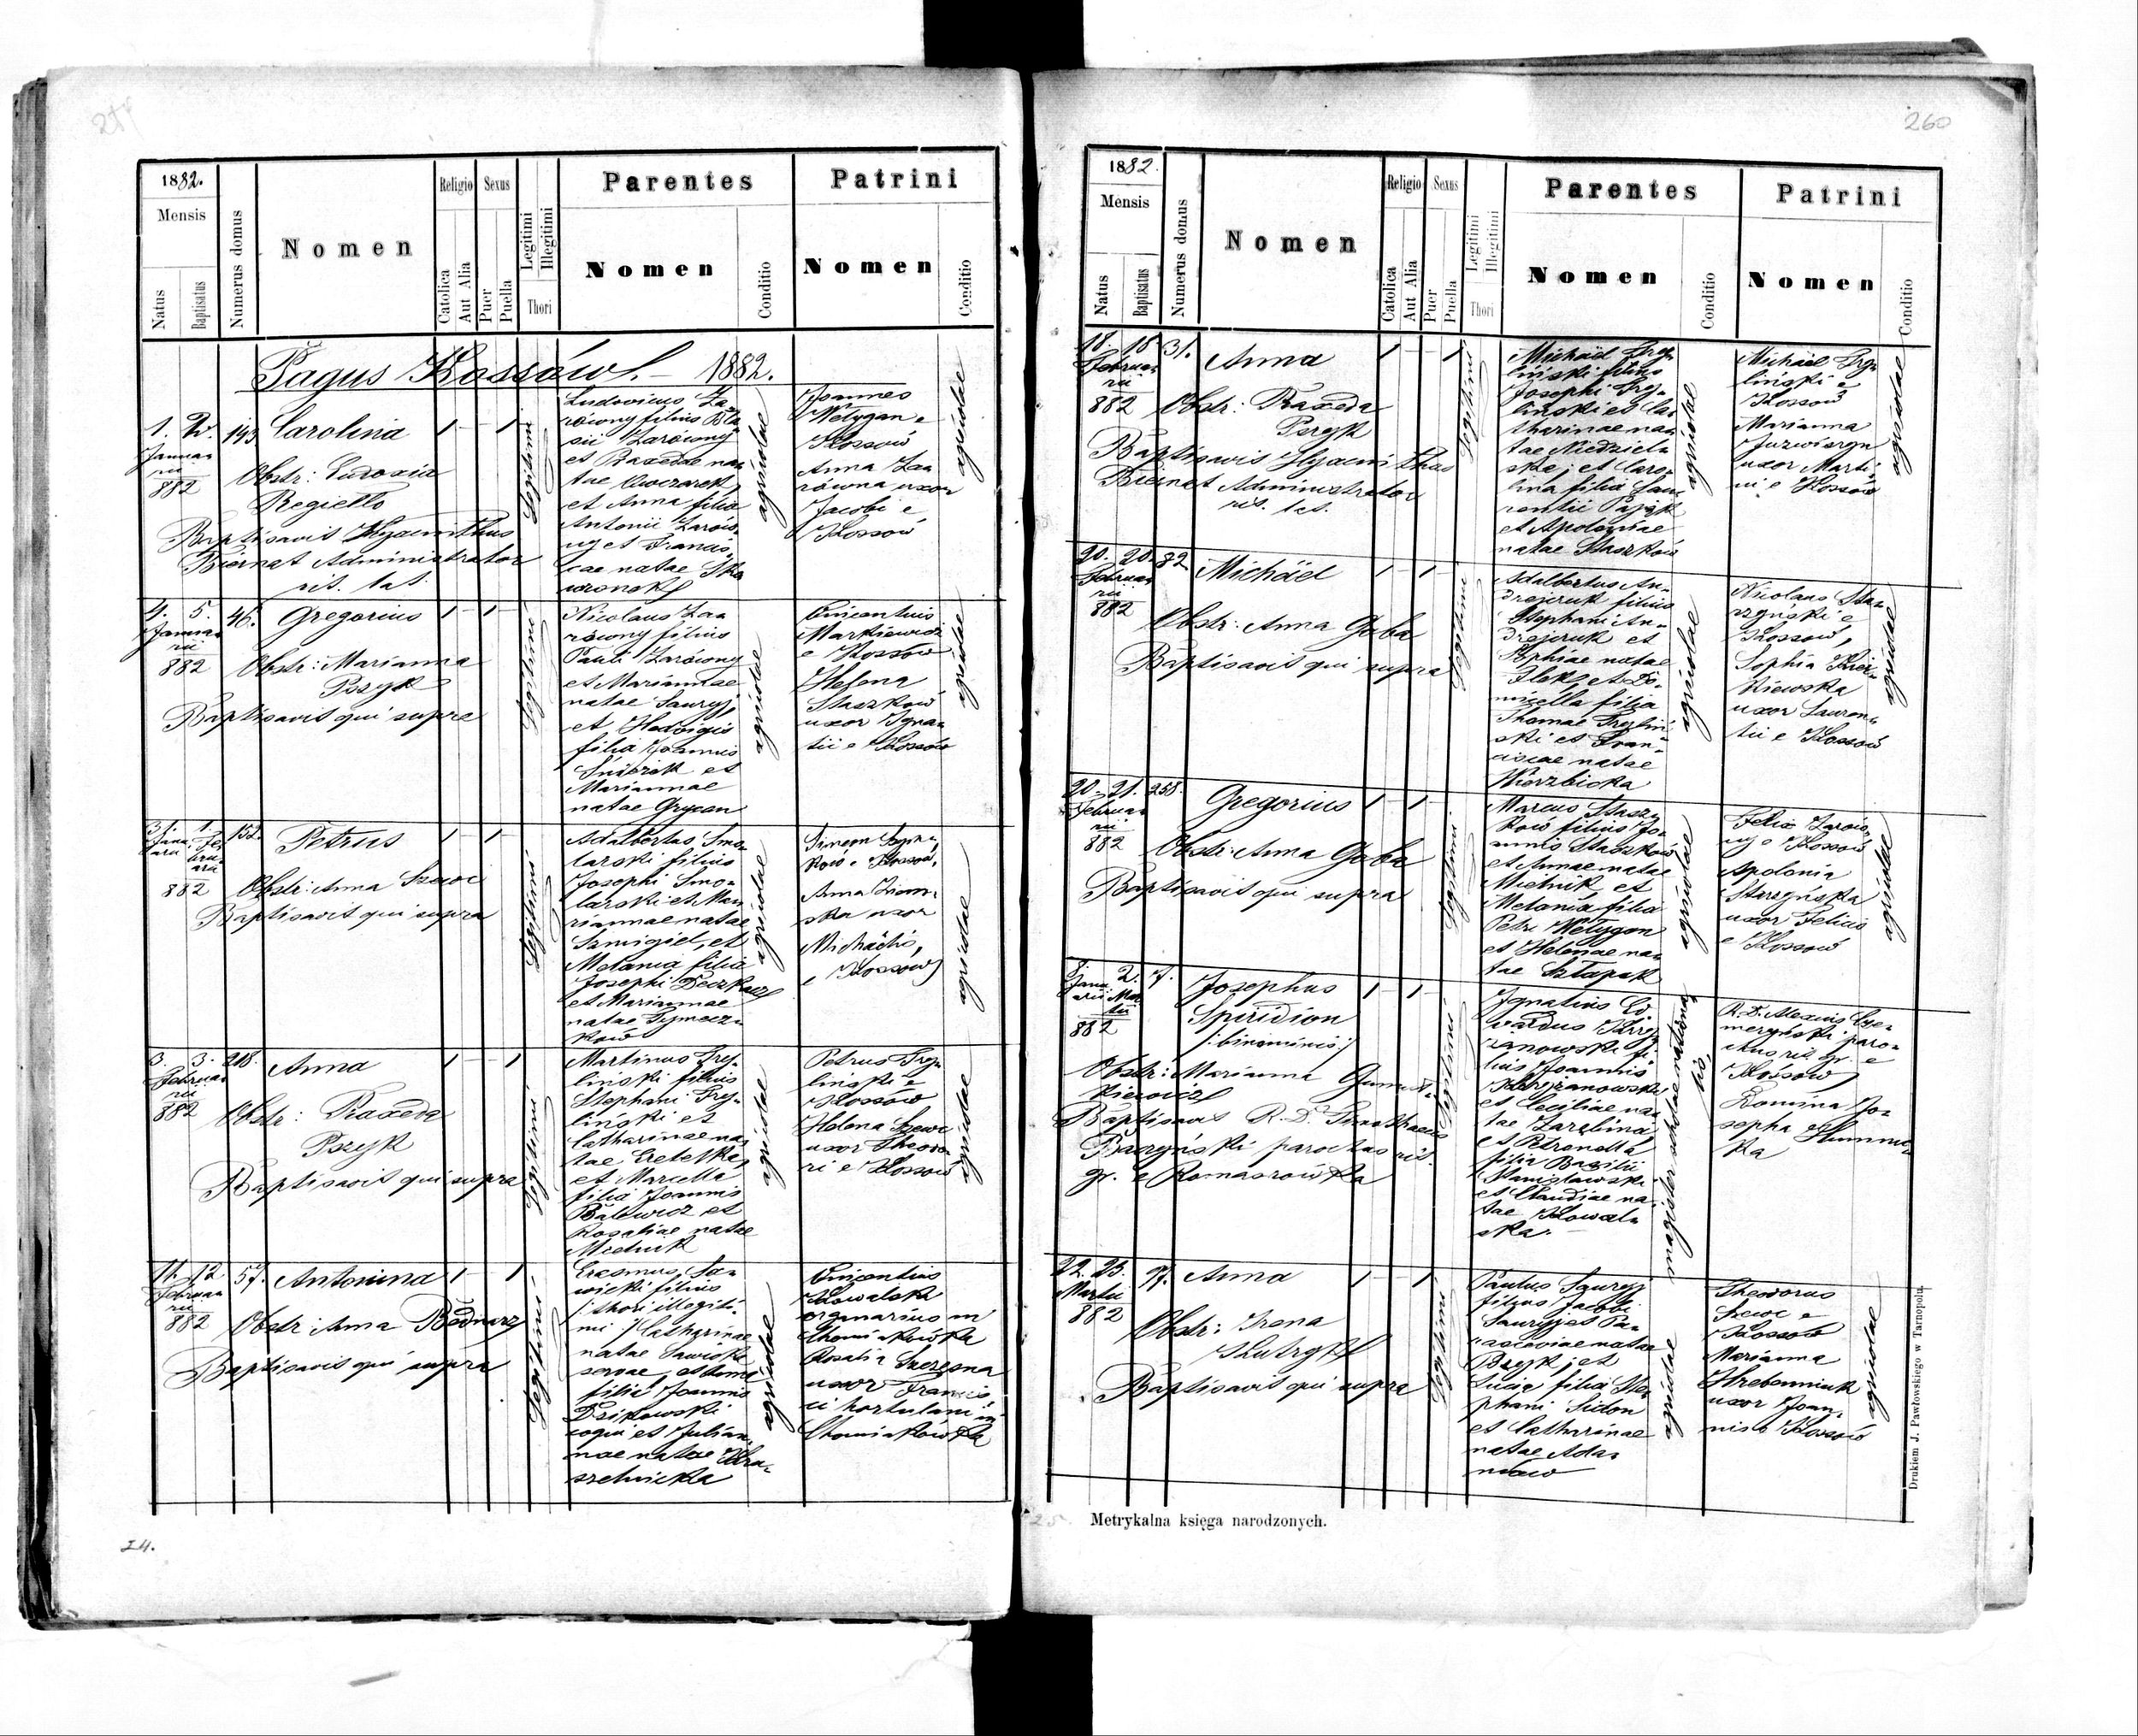 260
1882.
Mensis
Natus
Baptisatus
Numerus domus
Nomen
Religio
Catolica
Aut Alia
Sexus
Puer
Puella
Legitimi
Illegitimi
Thori
Parentes
Nomen
Conditio
Patrini
Nomen
Conditio
Pagus Kossów. 1882.
1. 2.
Januarii
882
193
Carolina
Obstr: Eudoxia
Regiello
Baptisavit Hyacinthus
Biernat Administrator
rit. lat.
Legitimi
Ludovicus Za-
równy filius Bla-
sii Zarówny
et Praxedae na-
tae Owczarek
et Anna filia
Antonii Zarów-
ny et Francis-
cae natae Ska
wronek
agricolae
Joannes
Wełygan e
Kossów
Anna Za-
równa uxor
Jacobi e
Kossów
agricolae
4. 5.
Januarii
882
46.
Gregorius
Obstr: Marianna
Pszyk
Baptisavit qui supra
Legitimi
Nicolaus Za-
równy filius
Pauli Zarówny
et Mariannae
natae Lauryj,
et Hedvigis
filia Joannis
et
Mariannae
natae Grycan
agricolae
Vincentius
Markiewicz
e Kossów
Stefana
Staszków
uxor Igna-
tii e Kossów
agricolae
31. 1.
882
152.
Petrus
Obstr: Anna Szewc
Baptisavit qui supra
Legitimi
Adalbertus Smo-
larski filius
Josephi Smo-
larski et Ma-
riannae natae
Szmigiel, et
Melania filia
Josephi
et Mariannae
natae Tymcza-
ków
agricolae
Simeon
ków e Kossów,
Anna
ska uxor
Michaëlis,
e Kossów
agricolae
3. 3.
Februarii
882
218.
Anna
Obstr: Praxeda
Pszyk
Baptisavit qui supra
Legitimi
Martinus Trę-
liński filius
Stephani Trę-
liński et
Catharinae na-
tae
et Marcella
filia Joannis
Balewicz et
Rosaliae natae
Mielnik
agricolae
Petrus Trę-
liński e
Kossów
Helena Szewc
uxor Theodo-
ri e Kossów
agricolae
11. 12
Februarii
882
57.
Antonina
Obstr: Anna Bednarz
Baptisavit qui supra
Legitimi
Erasmus Sa-
wicki filius
thori illegiti-
mi Catharinae
natae Sawicka
servae, et
filia Joannis
Dzikowski
coqui et Julian-
nae natae
agricolae
Vincentius
Kowalski
in
Chomiakówka
Rosalia Szczesna
uxor Francis-
ci hortulani in
Chomiakówka
agricolae
24.
1882.
Mensis
Natus
Baptisatus
Numerus domus
Nomen
Religio
Catolica
Aut Alia
Sexus
Puer
Puella
Legitimi
Illegitimi
Thori
Parentes
Nomen
Conditio
Patrini
Nomen
Conditio
18. 18
Februarii
882
31.
Anna
Obstr: Praxeda
Pszyk
Baptisavit Hyacinthus
Biernat Administrator
rit. lat.
Legitimi
Michaël Trę-
liński filius
Josephi Trę-
liński et Ca-
tharinae na-
tae Niedziel-
ska; et Caro-
lina filia Lau-
rentii Pszyk
et Apoloniae
natae Staszków
agricolae
Michaël Trę-
liński e
Kossów
Marianna
uxor Marti-
ni e Kossów
agricolae
20. 20.
Februarii
882
82
Michaël
Obstr: Anna Gaba
Baptisavit qui supra
Legitimi
Adalbertus An-
drejczuk filius
Stephani An-
drejczuk et
Sophiae natae
et Do-
micella filia
Thomae Tręliń-
ski et Fran-
ciscae natae
Wierzbicka
agricolae
Nicolaus Sta-
rzyński e
Kossów,
Sophia
kiewska
uxor Lauren-
tii e Kossów
agricolae
20. 21.
Februarii
882
258.
Gregorius
Obstr: Anna Gaba
Baptisavit qui supra
Legitimi
Marcus Stasz-
ków filius Jo-
annis Staszków
et Annae natae
Mielnik et
Melania filia
Petri Wełygan
et Helenae na-
tae Szłapak
agricolae
Felix Zarów-
ny e Kossów
Apolonia
Starzyńska
uxor Felicis
e Kossów
agricolae
8. 2.
882
7.
Josephus
Spiridion
/binominis/
Obstr: Marianna
kiewicz
Baptisavit R. D. Timothaeus
Baczyński parochus rit.
gr. e Romaszówka
Legitimi
Ignatius Ed-
vardus Krzy-
żanowski fi-
lius Joannis
Krzyżanowski
et Ceciliae na-
tae Zarębina
et Petronella
filia Basilii
Stanisławski
et Claudiae na-
tae Kowal-
ska.
magister scholae
R. D. Alexius Cze-
meryński paro-
chus rit. gr. e
Kossów
Domina Jo-
sepha
ka
22. 23.
Martii
882
97.
Anna
Obstr: Irena
Baptisavit qui supra
Legitimi
Paulus Lauryj
filius Jacobi
Lauryj et Pa-
rasceviae natae
Pszyk; et
Lucia filia Ste-
phani Sidon
et Catharinae
natae Ada-
mów
agricolae
Theodorus
Szewc e
Kossów
Marianna
Hrebenniuk
uxor Joan-
nis e Kossów
agricolae
Metrykalna księga narodzonych.
Drukiem J. Pawłowskiego w Tarnopolu.